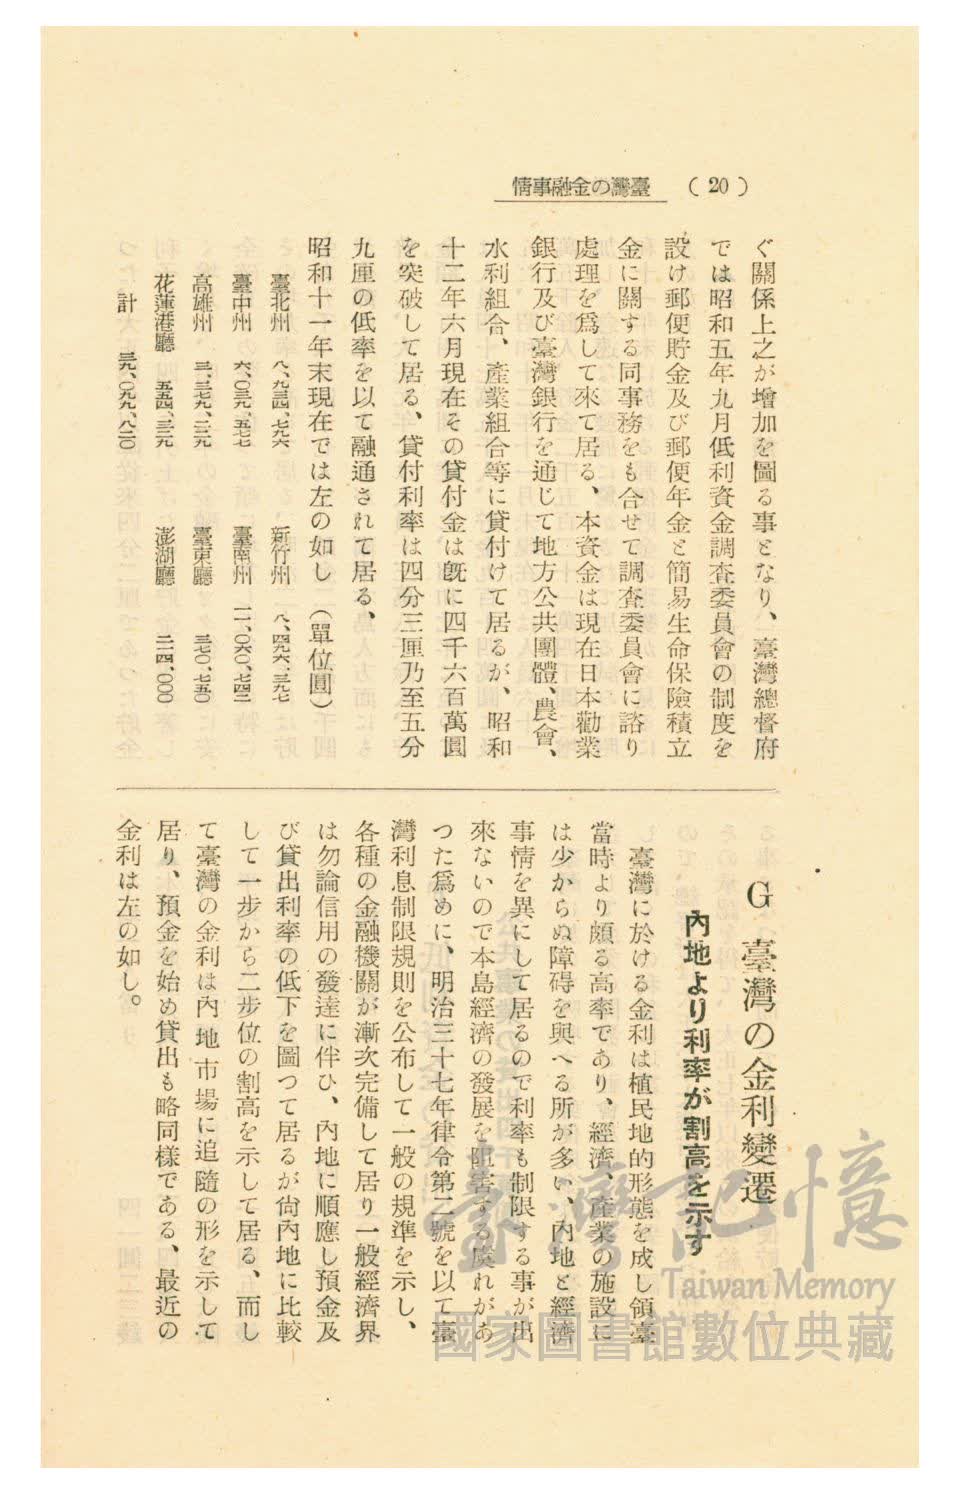 (20) 臺灣の金融事情
ぐ關係上之が增加を圖る事となり、臺灣總督府
では昭和五年九月低利資金調査委員會の制度を
設け郵便貯金及び郵便年金と簡易生命保險積立
金に關する同事務をも合せて調査委員會に諮り
處理を爲して來て居る、本資金は現在日本勸業
銀行及び臺灣銀行を通じて地方公共團體、農會、
水利組合、產業組合等に貸付けて居るが、昭和
十二年六月現在その貸付金は旣に四千六百萬圓
を突破して居る、貸付利率は四分三厘乃至五分
九厘の低率を以て融通されて居る、
昭和十一年末現在では左の如し (單位圓)
臺北州 八、九三四、七九六 新竹州 八、四九六、三九七
臺中州 六、〇三九、五七七 臺南州 一一、〇六〇、七四二
高雄州 三、三七九、二二九 臺東廳 三七〇、七五〇
花蓮港廳 五五四、三二九 澎湖廳 二一四、〇〇〇
計 三九、〇九九、八二〇
G 臺灣の金利變遷
內地より利率が割高を示す
臺灣に於ける金利は植民地的形態を成し領臺
當時より頗る高率であり、經濟、產業の施設に
は少からぬ障碍を與へる所が多い、內地と經濟
事情を異にして居るので利率も制限する事が出
來ないので本島經濟の發展を阻害する虞れがあ
つた爲めに、明治三十七年律令第二號を以て臺
灣利息制限規則を公布して一般の規準を示し、
各種の金融機關が漸次完備して居り一般經濟界
は勿論信用の發達に伴ひ、內地に順應し預金及
び貸出利率の低下を圖つて居るが尙內地に比較
して一步から二步位の割高を示して居る、而し
て臺灣の金利は內地市場に追隨の形を示して
居り、預金を始め貸出も略同樣である、最近の
金利は左の如し。
臺灣記憶
Taiwan Memory
國家圖書館數位典藏